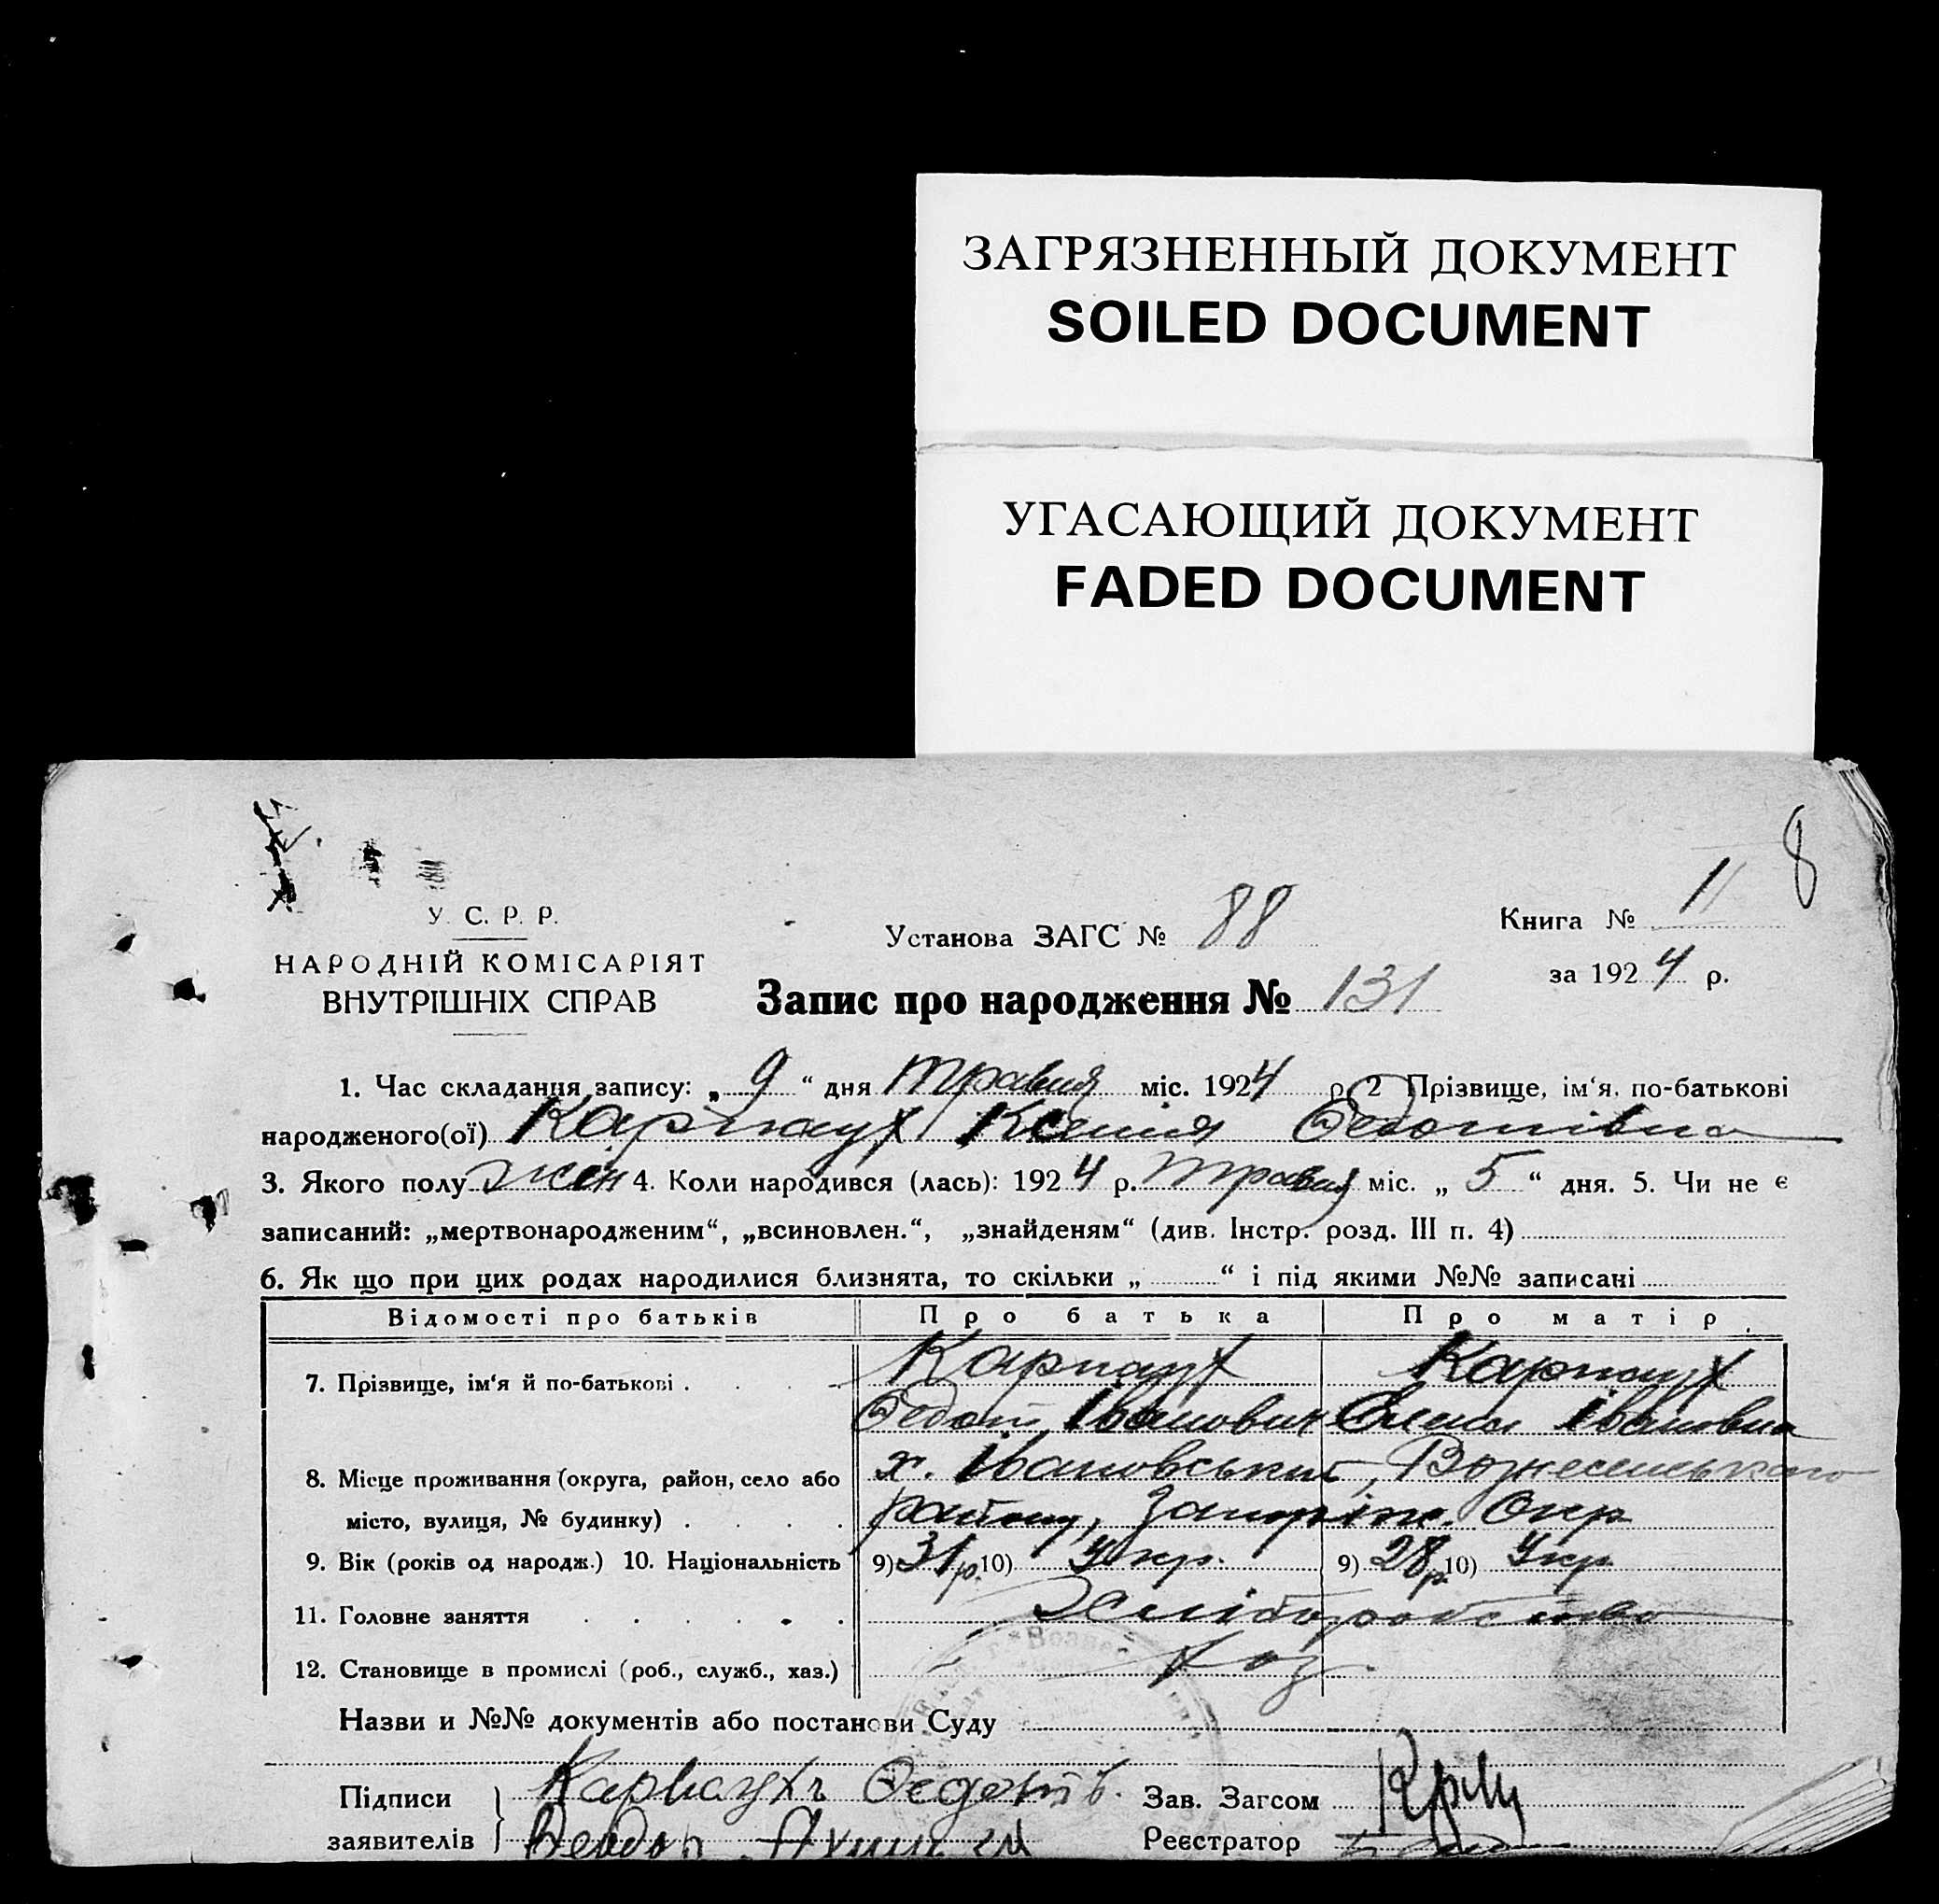 ЗАГРЯЗНЕННЫЙ ДОКУМЕНТ
SOILED DOCUMENT
УГАСАЮЩИЙ ДОКУМЕНТ
FADED DOCUMENT
8
У. С. Р. Р.
НАРОДНІЙ КОМІСАРІЯТ
ВНУТРІШНІХ СПРАВ
Установа ЗАГС № 88
Запис про народження № 131
Книга № 11
за 1924 р.
1. Час складання запису: „ 9 “ дня травня міс. 1924 р. 2 Прізвище, ім‘я, по-батькові
народженого(ої) Карпаух Ксенія Федотівна
3. Якого полу жін 4. Коли народився (лась): 1924 р. травня міс. „ 5 “ дня. 5. Чи не є
записаний: „мертвонародженим“, „всиновлен.“, „знайденям“ (див. Інстр. розд. III п. 4)
6. Як що при цих родах народилися близнята, то скільки „ “ і під якими №№ записані
Відомості про батьків Про батька Про матір
7. Прізвище, ім‘я й по-батькові Карпаух Карпаух
Федот Іванович Єлена Івановна
8. Місце проживання (округа, район, село або х. Івановський, Вознесенського
місто, вулиця, № будинку) району, Запоріж. Окр
9. Вік (років од народж.) 10. Національність 9) 31 р. 10) Укр. 9) 28 р. 10) Укр
11. Головне заняття Хліборобство
12. Становище в промислі (роб., служб., хаз.) Хоз.
Назви и №№ документів або постанови Суду
Підписи Карпаухъ Федотъ. Зав. Загсом
заявителів Реєстратор